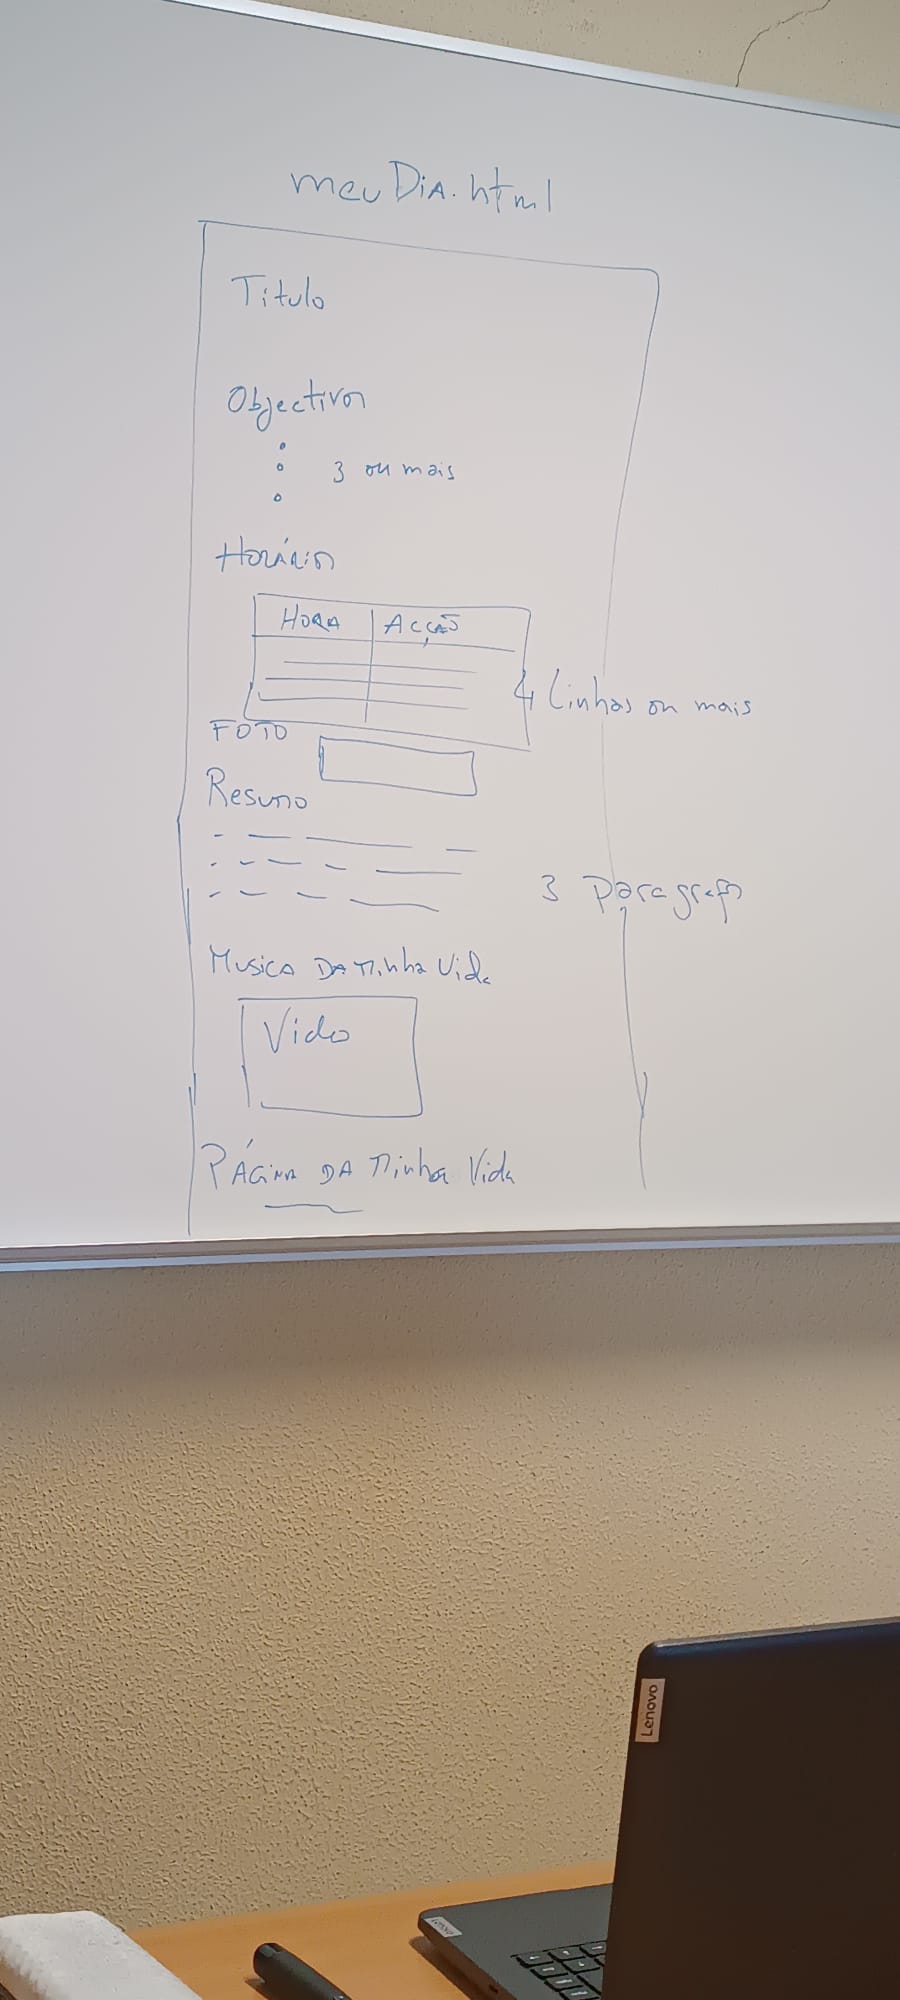 meuDia.html
Titulo
Objectivos
3 ou mais
Horário
HORA ACÇÃO
4 linhas ou mais
FOTO
Resumo
3 Paragrafos
Musica DA Minha Vida
Video
PÁGINA DA Minha Vida
Lenovo
Lenovo